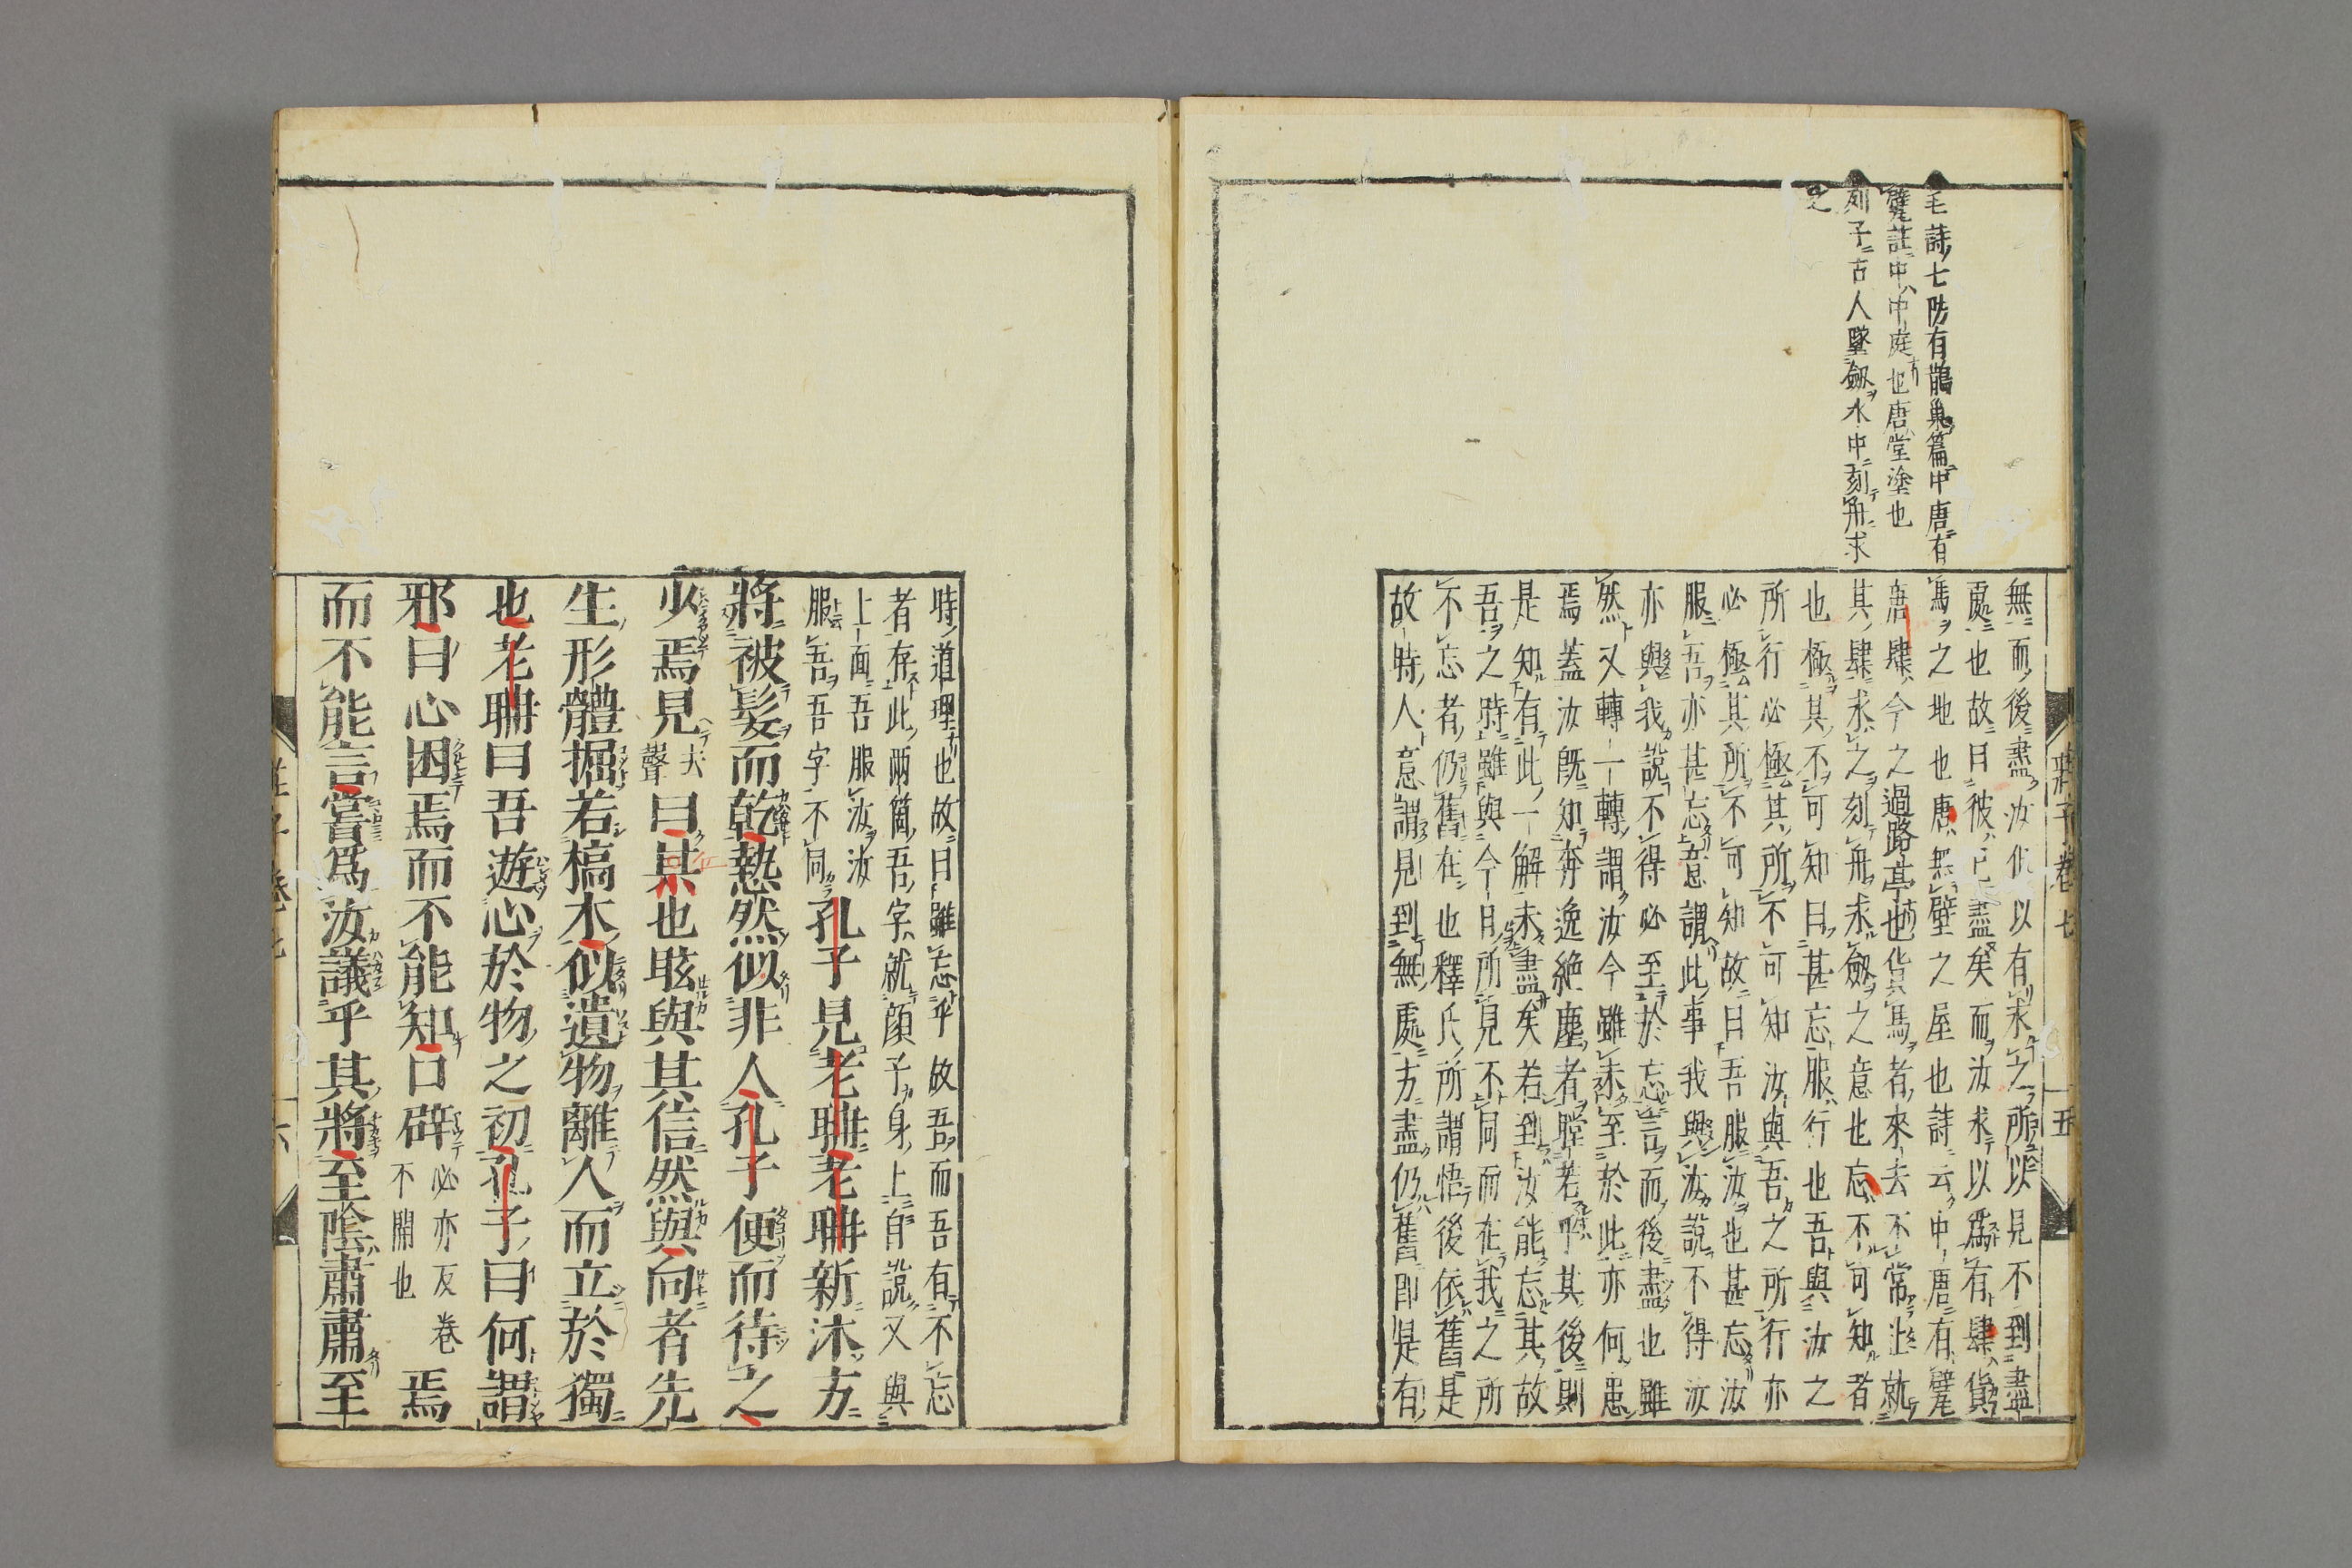 毛詩七防有鵲巢篇中唐有
甓註中中庭也唐堂塗也
列子古人墜劔水中刻舟求
之
無而後盡汝但以有求之所以見不到盡
處也故曰彼已盡矣而汝求以爲有肆貨
馬之地也唐無壁之屋也詩云中唐有甓
唐肆今之過路亭也貨馬者來去不常止就
其肆求之刻舟求劔之意也忘不可知者
也極其不可知曰甚忘服行也吾與汝之
所行必極其所不可知汝與吾之所行亦
必極其所不可知故曰吾服汝也甚忘汝
服吾亦甚忘意謂此事我與汝說不得汝
亦與我說不得必至於忘言而後盡也雖
然又轉一轉謂汝今雖未至於此亦何患
焉蓋汝旣知奔逸絶塵者瞠若乎其後則
是知有此一解未盡矣若到汝能忘其故
吾之時雖與今日所見不同而在我之所
不忘者仍舊在也釋氏所謂悟後依舊是
故時人意謂見到無處方盡仍舊即是有
莊子卷七
十五
時道理也故曰雖忘乎故吾而吾有不忘
者存此兩箇吾字就顔子身上自說又與
上面吾服汝汝
服吾吾字不同孔子見老聃老聃新沐方
將被髮而乾慹然似非人孔子便而待之
少焉見夫聲曰某也眩與其信然與向者先
生形體掘若槁木似遺物離人而立於獨
也老聃曰吾遊心於物之初孔子曰何謂
邪曰心困焉而不能知口辟必亦反卷不開也焉
而不能言嘗爲汝議乎其將至陰肅肅至